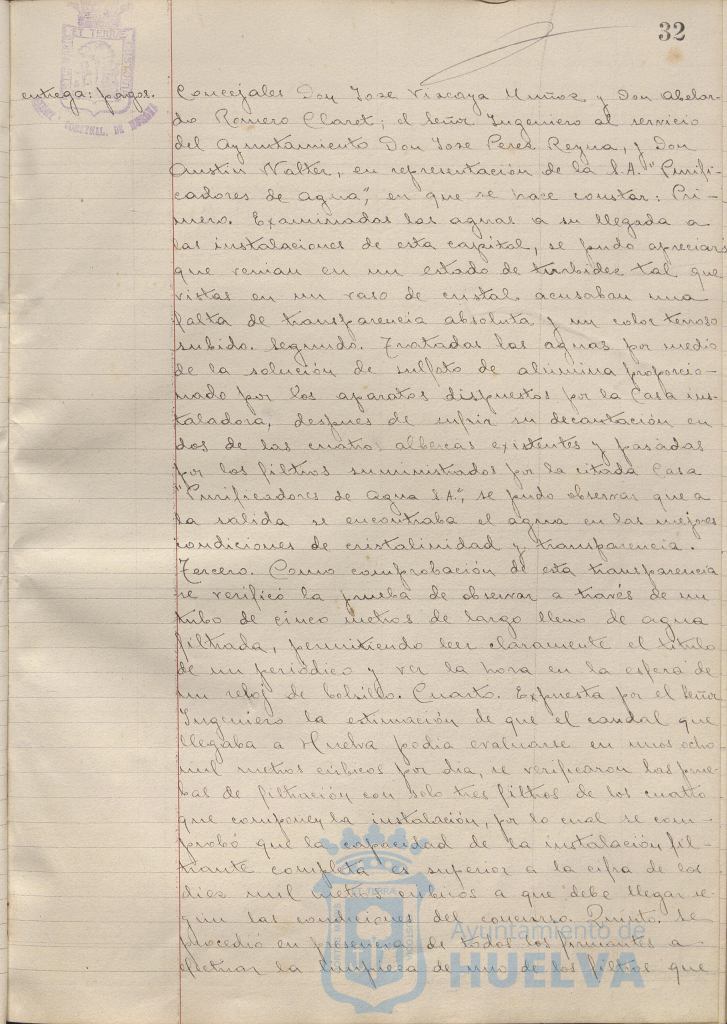 32
entrega: pagos.
Concejales Don Jose Vizcaya Muñoz y Don Abelar-
do Romero Claret; el Señor Ingeniero al servicio
del Ayuntamiento Don Jose Perez Reyna, y Don
Austin Walter, en representación de la S.A. "Purifi-
cadores de agua", en que se hace constar: Pri-
mero. Examinadas las aguas a su llegada a
las instalaciones de esta capital, se pudo apreciar
que venian en un estado de turbidez tal que
vistas en un vaso de cristal acusaban una
falta de transparencia absoluta y un color terroso
subido. Segundo. Tratadas las aguas por medio
de la solución de sulfato de alúmina proporcio-
nado por los aparatos dispuestos por la Casa ins-
taladora, despues de sufrir su decantación en
dos de las cuatro albercas existentes y pasadas
por los filtros suministrados por la citada Casa
"Purificadores de Agua S.A.", se pudo observar que a
la salida se encontraba el agua en las mejores
condiciones de cristalinidad y transparencia.
Tercero. Como comprobación de esta transparencia
se verificó la prueba de observar a través de un
tubo de cinco metros de largo lleno de agua
filtrada, permitiendo leer claramente el título
de un periódico y ver la hora en la esfera de
un reloj de bolsillo. Cuarto. Expuesta por el Señor
Ingeniero la estimación de que el caudal que
llegaba a Huelva podia evaluarse en unos ocho
mil metros cúbicos por dia, se verificaron las prue-
bas de filtración con solo tres filtros de los cuatro
que componen la instalación, por lo cual se com-
probó que la capacidad de la instalación fil-
trante completa es superior a la cifra de los
diez mil metros cúbicos a que debe llegar se-
gún las condiciones del concurso. Quinto. Se
procedió en presencia de todos los firmantes a
efectuar la limpieza de uno de los filtros que
Ayuntamiento de
HUELVA